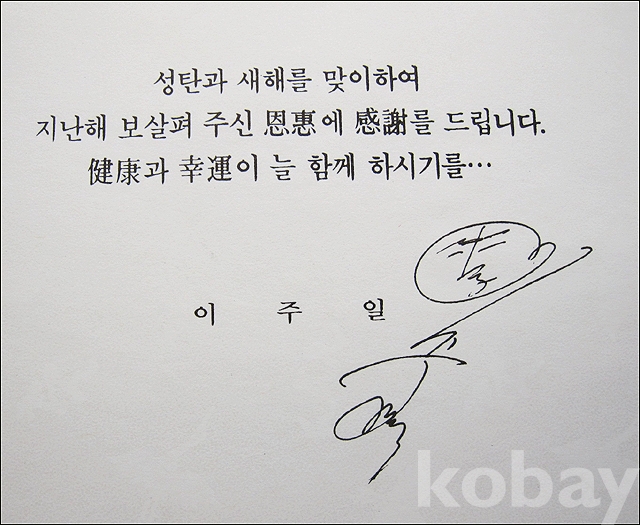 성탄과 새해를 맞이하여
지난해 보살펴 주신 恩惠에 感謝를 드립니다.
健康과 幸運이 늘 함께 하시기를…
이 주 일
kobay